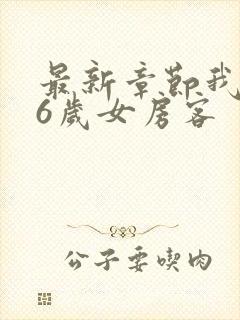 最新章節我
6歲女房客
公子要喫肉